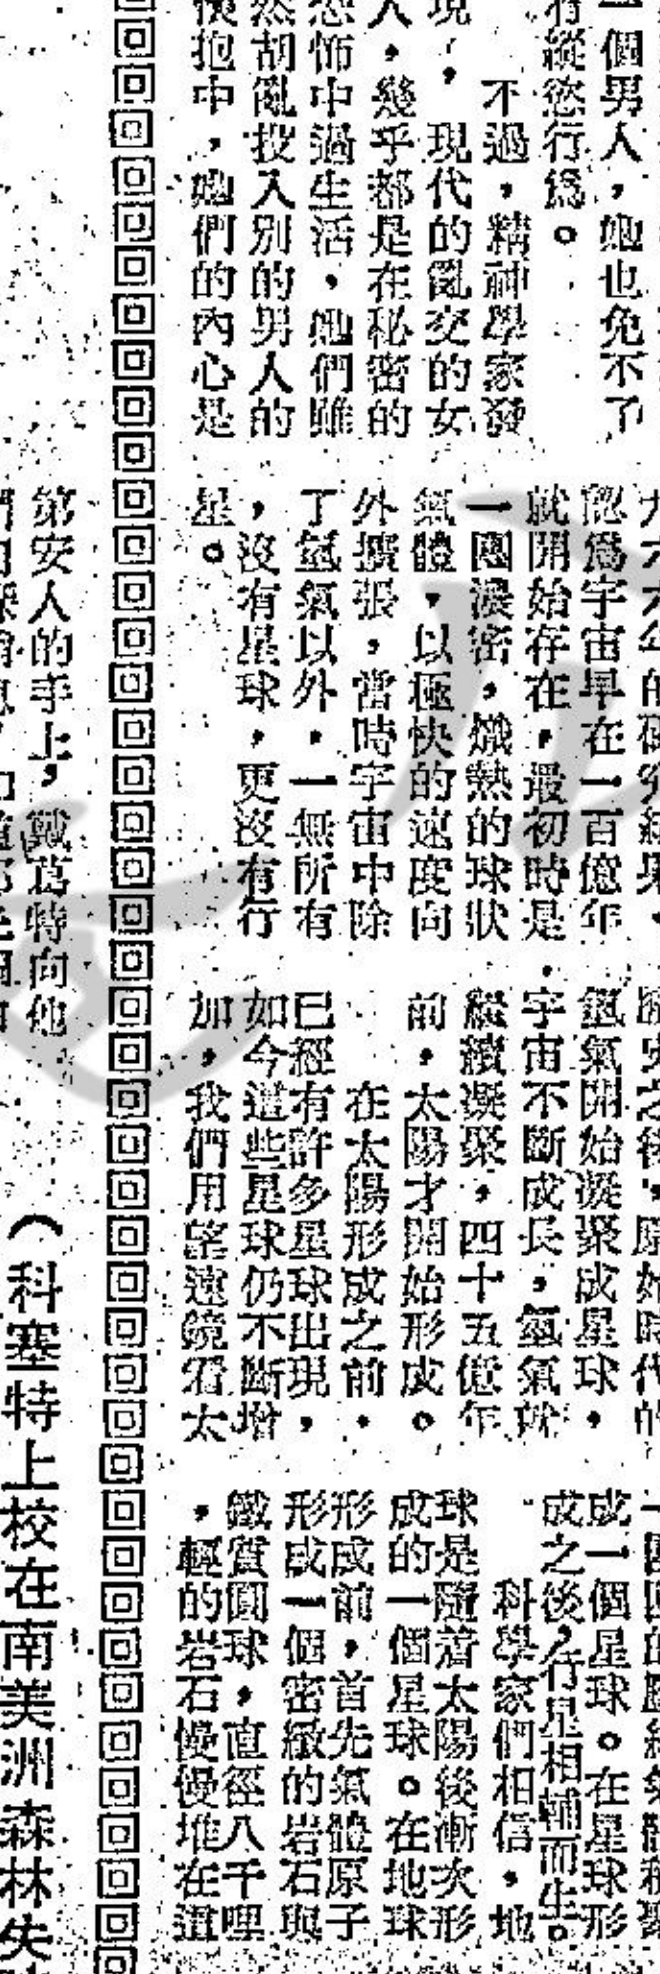 一個男人，她也免不了
有縱慾行爲。
不過，精神學家發
現，現代的亂交的女
人，幾乎都是在秘密的
恐怖中過生活，她們雖
然胡亂投入別的男人的
懷抱中，她們的內心是
認爲宇宙早在一百億年
就開始存在，最初時是
一團濃密，熾熱的球狀
氣體，以極快的速度向
外擴張，當時宇宙中除
了氫氣以外，一無所有
，沒有星球，更沒有行
星。
氫氣開始凝聚成星球，
宇宙不斷成長，氫氣就
繼續凝聚，四十五億年
前，太陽才開始形成。
在太陽形成之前，
已經有許多星球出現，
如今這些星球仍不斷增
加，我們用望遠鏡看太
成一個星球。在星球形
成之後，行星相輔而生。
科學家們相信，地
球是隨着太陽後漸次形
成的一個星球。在地球
形成前，首先氣體原子
形成一個密緻的岩石與
鐵質圓球，直徑八千哩
，輕的岩石慢慢堆在這
第安人的手上，戴葛特向他
（科塞特上校在南美洲森林失